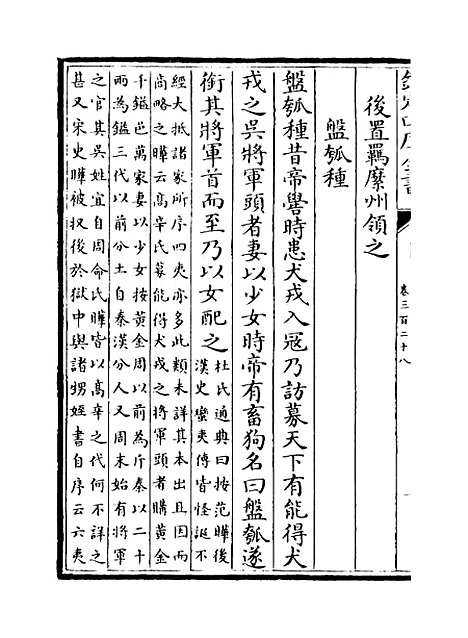 卷三百二十八
後置羈縻州領之
盤瓠種
盤瓠種昔帝嚳時患犬戎入冦乃訪募天下有能得犬
戎之吳將軍頭者妻以少女時帝有畜狗名曰盤瓠遂
銜其將軍首而至乃以女配之
杜氏通典曰按范曄後
漢史蠻夷傳皆怪誕不
經大抵諸家所序四夷亦多此類未詳其本出且因而
商略之曄云髙辛氏募能得犬戎之將軍頭者購黄金
千鎰邑萬家妻以少女按黄金周以前為斤秦以二十
兩為鎰三代以前分土自秦漢分人又周末始有將軍
之官其吳姓宜自周命氏曄皆以髙辛之代何不詳之
甚又宋史曄被収後於獄中與諸甥姪書自序云六夷